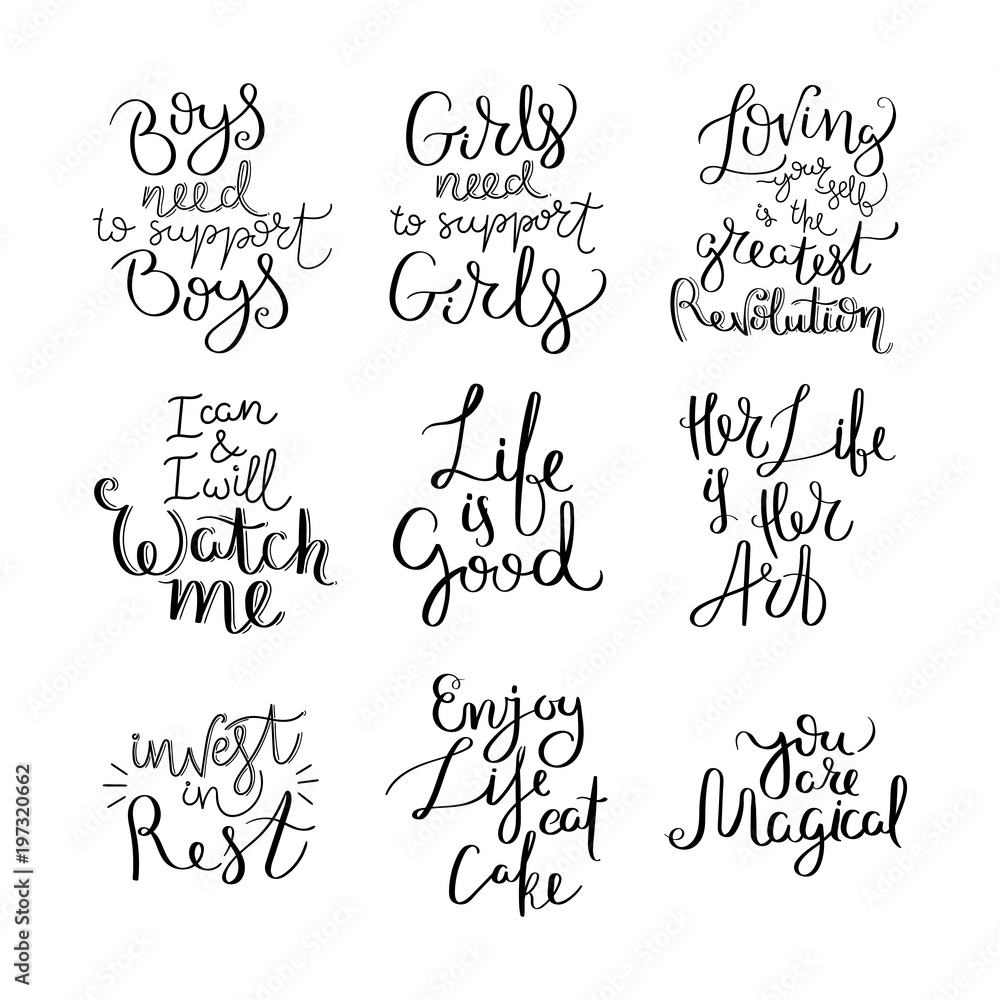 Boys
need
to support
Boys
Girls
need
to support
Girls
Loving
your self
is the
greatest
Revolution
I can
&
I will
Watch
me
Life
is
Good
Her Life
is Her
Art
invest
in
Rest
Enjoy
Life
eat
Cake
you
are
Magical
Adobe Stock | #197320662
Adobe Stock